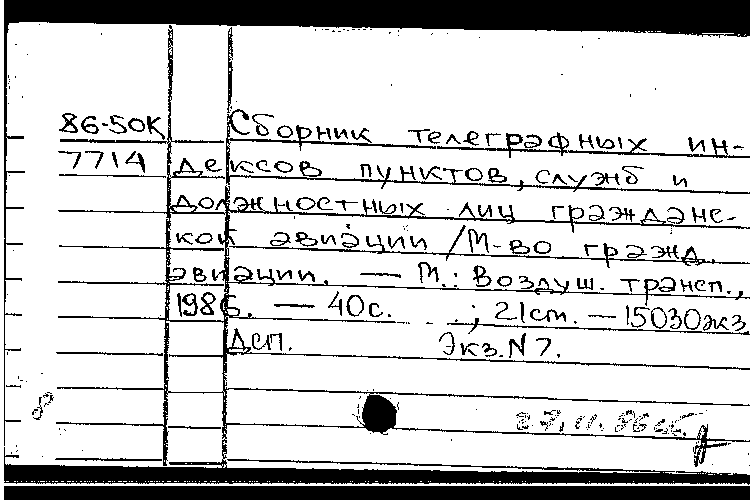 86-50К Сборник телеграфных ин-
7714 дексов пунктов, служб и
должностных лиц гражданс-
кой авиации /М-во гражд.
авиации. — М.: Воздуш. трансп.,
1986. — 40с. ; 21см. — 15030экз.
Дсп. Экз. N 7.
8